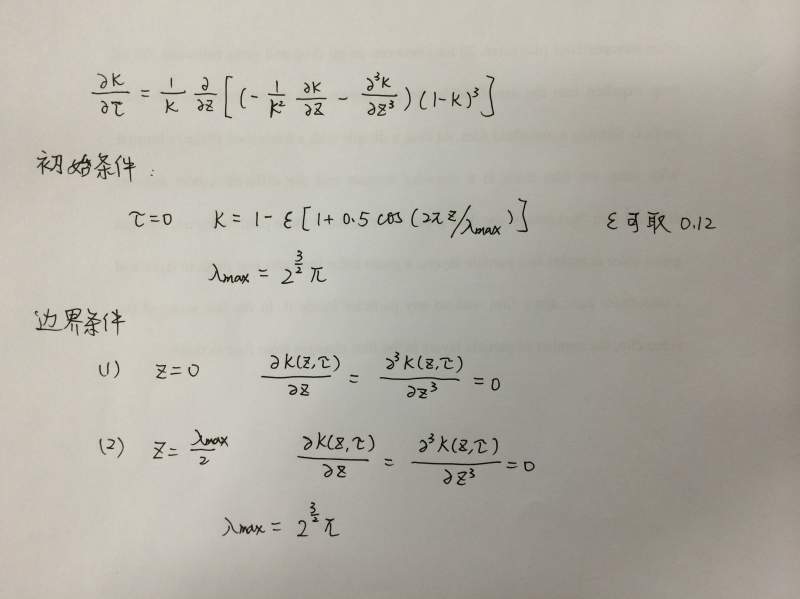 ∂K/∂τ = 1/K ∂/∂z [(- 1/K² ∂K/∂z - ∂³K/∂z³) (1-K)³]
初始条件:
τ=0 K = 1- ε[1+0.5 cos (2πz/λmax)] ε可取 0.12
λmax = 2^(3/2) π
边界条件
(1) z=0 ∂K(z,τ)/∂z = ∂³K(z,τ)/∂z³ = 0
(2) z= λmax/2 ∂K(z,τ)/∂z = ∂³K(z,τ)/∂z³ = 0
λmax = 2^(3/2) π